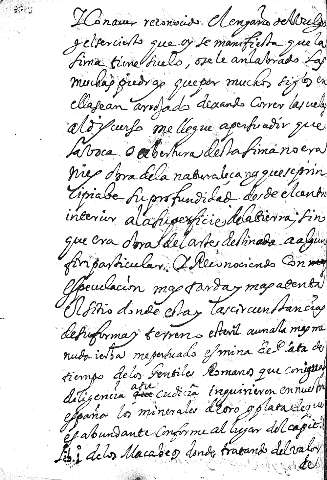 Y Con aver reconocido el engaño del Vulgo
y el ser cierto que oy se manifiesta que la
sima tiene suelo, o se le an labrado las
muchas piedras que por muchos siglos en
ella se an arrojado dexando correr las
al discurso me llegue a persuadir que
la boca o abertura desta sima no era
obra de la naturaleca ny que se prin
cipia de su profundidad desde el centro
interior a la superficie de la tierra, sino
que era obra del arte destinada a algun
fin particular. Y Reconociendo Con
especulacion mas tarda y mas atenta
el sitio donde esta y las circunstancias
de su forma y terreno esteril aun a la mas me
nuda ierba me persuado es mina de Plata de
tiempo de los Gentiles Romanos que con
diligencia codicia inquirieron en nuestra
españa los minerales de oro y plata de que
es abundante conforme al lugar del capit
Lib. 1 de los Macabeos donde tratando del valor
de